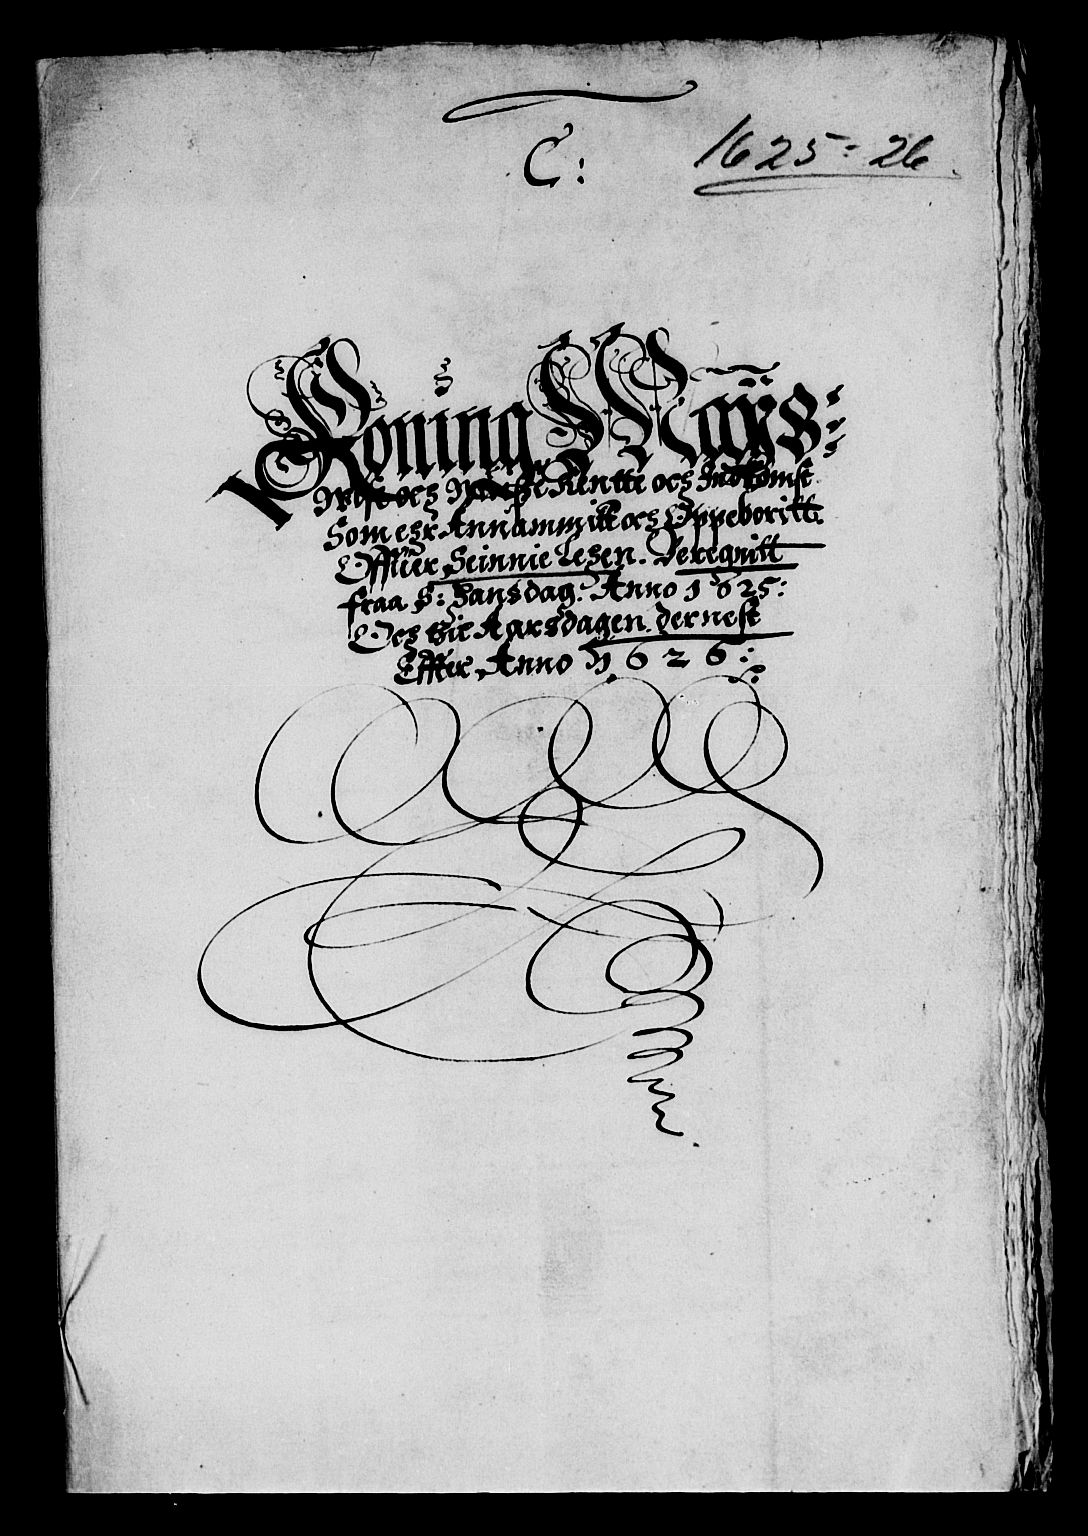 C:
1625: 26
Koning Mayts:
Wiss och Wiisse Rentte och Indkomst
Som ehr Annammitt och Oppeboritt
Offuer Seinnie Lehen. Beregnitt
fraa S: Hansdag: Anno 1625:
Och till Aarsdagen dernest
Effter Anno 1626: